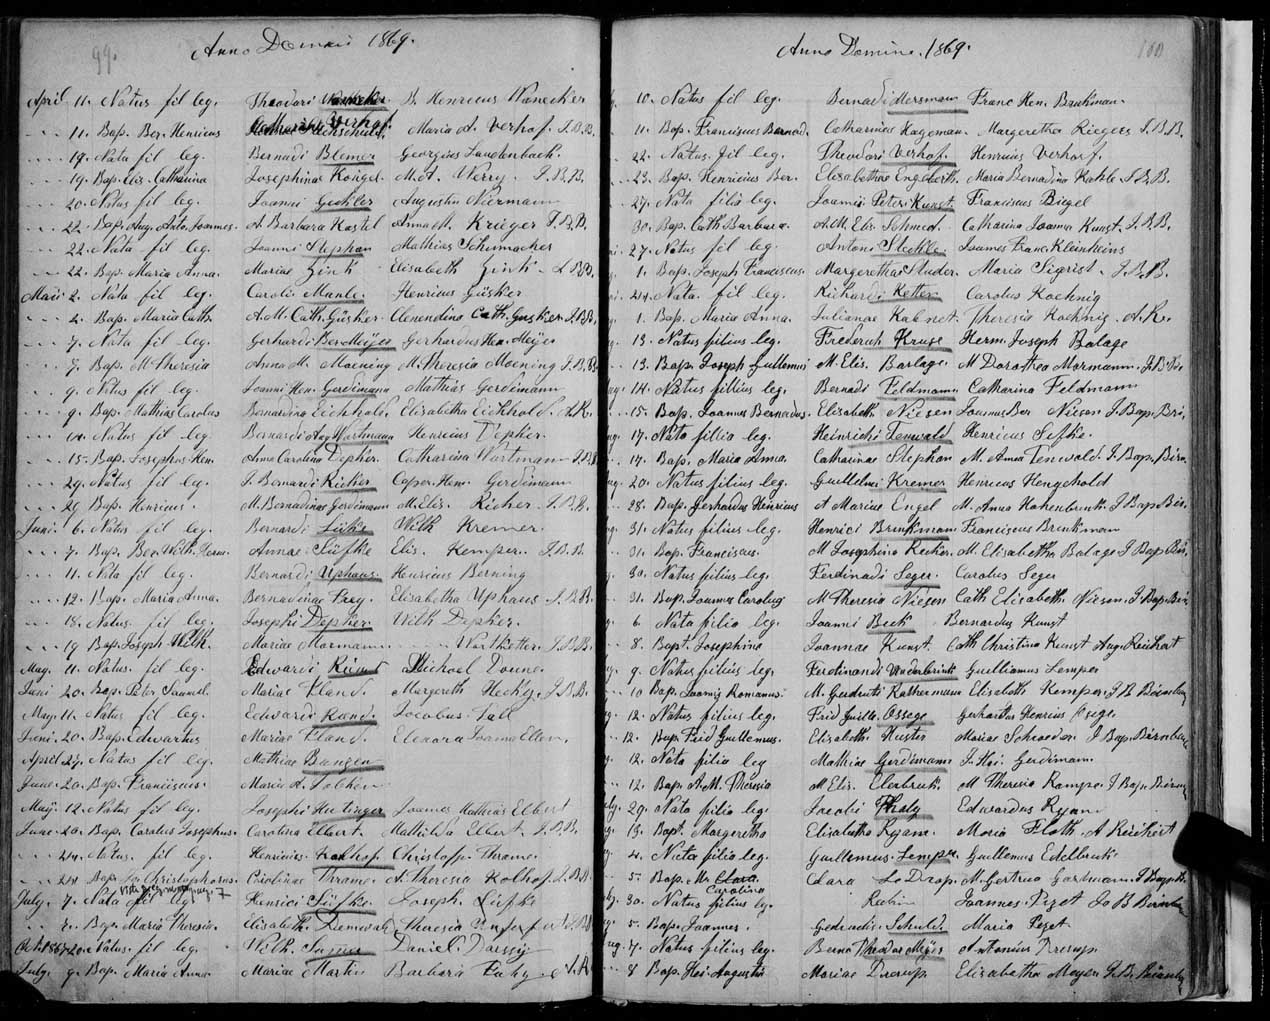 99.
Anno Domini 1869.
April 11. Natus fil leg. Theodori H. Henricus Wanecker
11. Bap. Ber. Henricus Verhof. Maria A. Verhof. J.B.B.
19. Nata fil leg. Bernadi Blemer Georgius Lautenbach.
19. Bap. Elis. Catharina Josephinae Koigel. M. A. Werry. J.B.B.
20. Natus fil leg. Joanni Gechler Augustin Niermann
22. Bap. Aug. Anto. Joannes. A. Barbara Kastel Anna M. Krieger J.B.B.
22. Nata fil leg. Joanni Stephan Mathias Schumacher
22. Bap. Maria Anna. Mariae Zink Elisabeth Zink J.B.B.
Maii 2. Nata fil leg. Caroli Manle. Henricus Güsker
2. Bap. Maria Cath. A.M. Cath. Güsker. Clemendina Cath. Gusker. J.B.B.
7. Nata fil leg. Gerhardi Ber. Meijer Gerhardus Hen. Meijer
7. Bap. M. Theresia Anna M. Moening M. Theresia Moening J.B.B.
9. Natus fil leg. Joanni Hen. Gerdimann Mathias Gerdimann
9. Bap. Mathias Carolus Bernardina Eichhold. Elisabetha Eichhold. A.R.
14. Natus fil leg. Bernardi Aug. Wortmann Henricus Depker.
15. Bap. Josephus Hen. Anna Carolina Depker. Catharina Wortmann J.B.B.
29. Natus fil leg. J. Bernardi Richer Casper. Hen. Gerdimann
29 Bap. Henricus. M. Bernadinae Gerdimann M. Elis. Richer. J.B.B.
Juni. 6. Natus fil leg. Bernardi Lüfke Wilh Kremer.
7. Bap. Ber. Wilh. Herm. Annae Lüfke Elis. Kemper. J.B.B.
11. Nata fil leg. Bernardi Uphaus. Henricus Berning
12. Bap. Maria Anna. Bernardinae Frey. Elisabetha Uphaus J.B.B.
18. Natus. fil leg. Josephi Depker. Wilh Depker.
19 Bap. Joseph Wilh. Mariae Mormann. Wortkotter. J.B.B.
May. 11. Natus. fil leg. Edwardi Michael Donne
Juni 20. Bap. Peter Samuel. Mariae Eland. Margareth Hecky. J.B.B.
May. 11. Natus fil leg. Edwardi Jacobus Gall
Juni. 20. Bap. Edwartus Mariae Eland. Eleanora Joanna Ellen.
April 27. Natus fil leg. Mathiae Bangen
June. 20. Bap. Franciscus. Maria A.
Maij. 12. Natus fil leg. Josephi Huttinger Joannes Mathias Elbert
June. 20. Bap. Carolus Josephus. Carolina Elbert. Mathilda Elbert J.B.B.
24. Natus. fil leg. Henricus. Kolhof. Christoph Thrame.
24 Bap. Christophorus. Carolinae Thrame. A. Theresia Kolhof. J.B.B.
July. 7. Nata fil leg. Henrici Lüfke. Joseph. Lüfke
Bap. Maria Theresia. Elisabeth Theresia J.B.B.
Oct. 1867 20. Natus. fil leg. Wilh. Daniel. Darssy
July. 9. Bap. Maria Anna Mariae Martin Barbara Fahy.
100
Anno Domini. 1869.
10. Natus fil leg. Bernadi Mersmann Franc Hen. Brukman.
11. Bap. Franciscus Bernad. Catharinae Hageman. Margaretha Riegers J.B.B.
22. Natus. fil leg. Theodori Verhof. Henricus Verhorf.
23. Bap. Henricus Ber. Elisabethae Engeberth. Maria Bernadina Kahle J.B.B.
27. Nata filia leg. Joannis Peter Kunst Franciscus Biegel
30. Bap. Cath Barbara. A.M. Elis Schmed. Catharina Joanna Kunst. J.B.B.
27. Natus fil leg. Antoni Stehle. Joannes Franc. Kleinheins
1. Bap. Joseph Franciscus. Margerethae Studer. Maria Sigrist. J.B.B.
24. Nata. fil leg. Richardi Ketter Carolus Koehnig
1. Bap. Maria Anna. Julianae Kabnet. Theresia Koehnig. A.R.
13. Natus filius leg. Frederich Kruse Herm. Joseph Balage
13. Bap. Joseph Guillemus M. Elis. Barlage M Dorothea Mormann. J.B.
14. Natus fillius leg. Bernadi Feldmann Catharina Feldmann
15. Bap. Joannes Bernardus. Elisabeth Niesen Joannes Ber Niesen J Bap. Bri.
17. Nata fillia leg. Heinrichi Tenwald Henricus Sifke.
17. Bap. Maria Anna. Catharinae Stephan M. Anna Tenwald. J Bap. Birn.
20. Natus filius leg. Guillelmi Kremer Henricus Hengehold
28. Bap. Gerhardus Heinrius A Mariae Engel M. Anna Hohenbrink. J Bap. Bir.
31. Natus filius leg. Henrici Brinkmann Franciscus Brinkman
31. Bap. Franciscus. M Josephina Recker. M. Elisabetha Balage J Bap. Bir.
30. Natus filius leg. Ferdinadi Seger Carolus Seger
31. Bap. Joannes Carolus M Theresia Niesen Cath Elisabeth Niesen. J Bap. Bir.
6 Nata filia leg. Joanni Beck Bernardus Kunst
8. Bapt. Josephina Joannae Kunst. Cath Christina Kunst Aug. Reichart
9. Natus filius leg. Ferdinandi Underbrink Guillianus Lemper
10 Bap. Joannis Romanus. M. Gerdruth Rathermann Elisabeth Kemper. J B Birnbu
12. Natus filius leg. Frid Guille. Ossege Gerhartus Henrius Osege
12. Bap. Frid Guillemus. Elisabeth Huster Mariae Schroeder. J Bap. Birnbau
12. Nata filia leg Mathias Gerdimann J. Hei. Gerdimann.
12. Bap. A.M. Theresia M Elis. Elerbruk. M Theresia Rampe. J Bap. Birnb
29. Nata filia leg Jacobi Thaly Edwardus Ryan
13. Bapt. Margeretha Elizabetha Ryane. Maria Floth. A Reichert
4. Nata filia leg. Guillemus. Lemper. Guillemus Edelbruck
5. Bap. M. Clara Carolina Clara Le Drop. M. Gertrud Gartmann. J Bap. B.
30. Natus filius lg. Joannes. Pezot Jo B Birnb
5. Bap. Joannes. Gedrudis Schuld. Maria Pezot
7. Natus filius leg. Berna Theodor Meijer Antonius Drerup
8 Bap. Hei Augustin Mariae Drerup Elizabetha Meyer J.B. Birnb